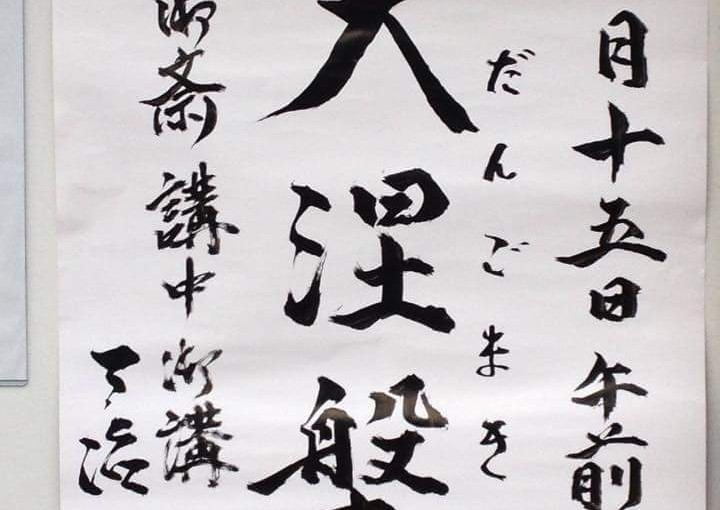 月十五日午前
だんごまき
大涅般
御斎 講中 御講